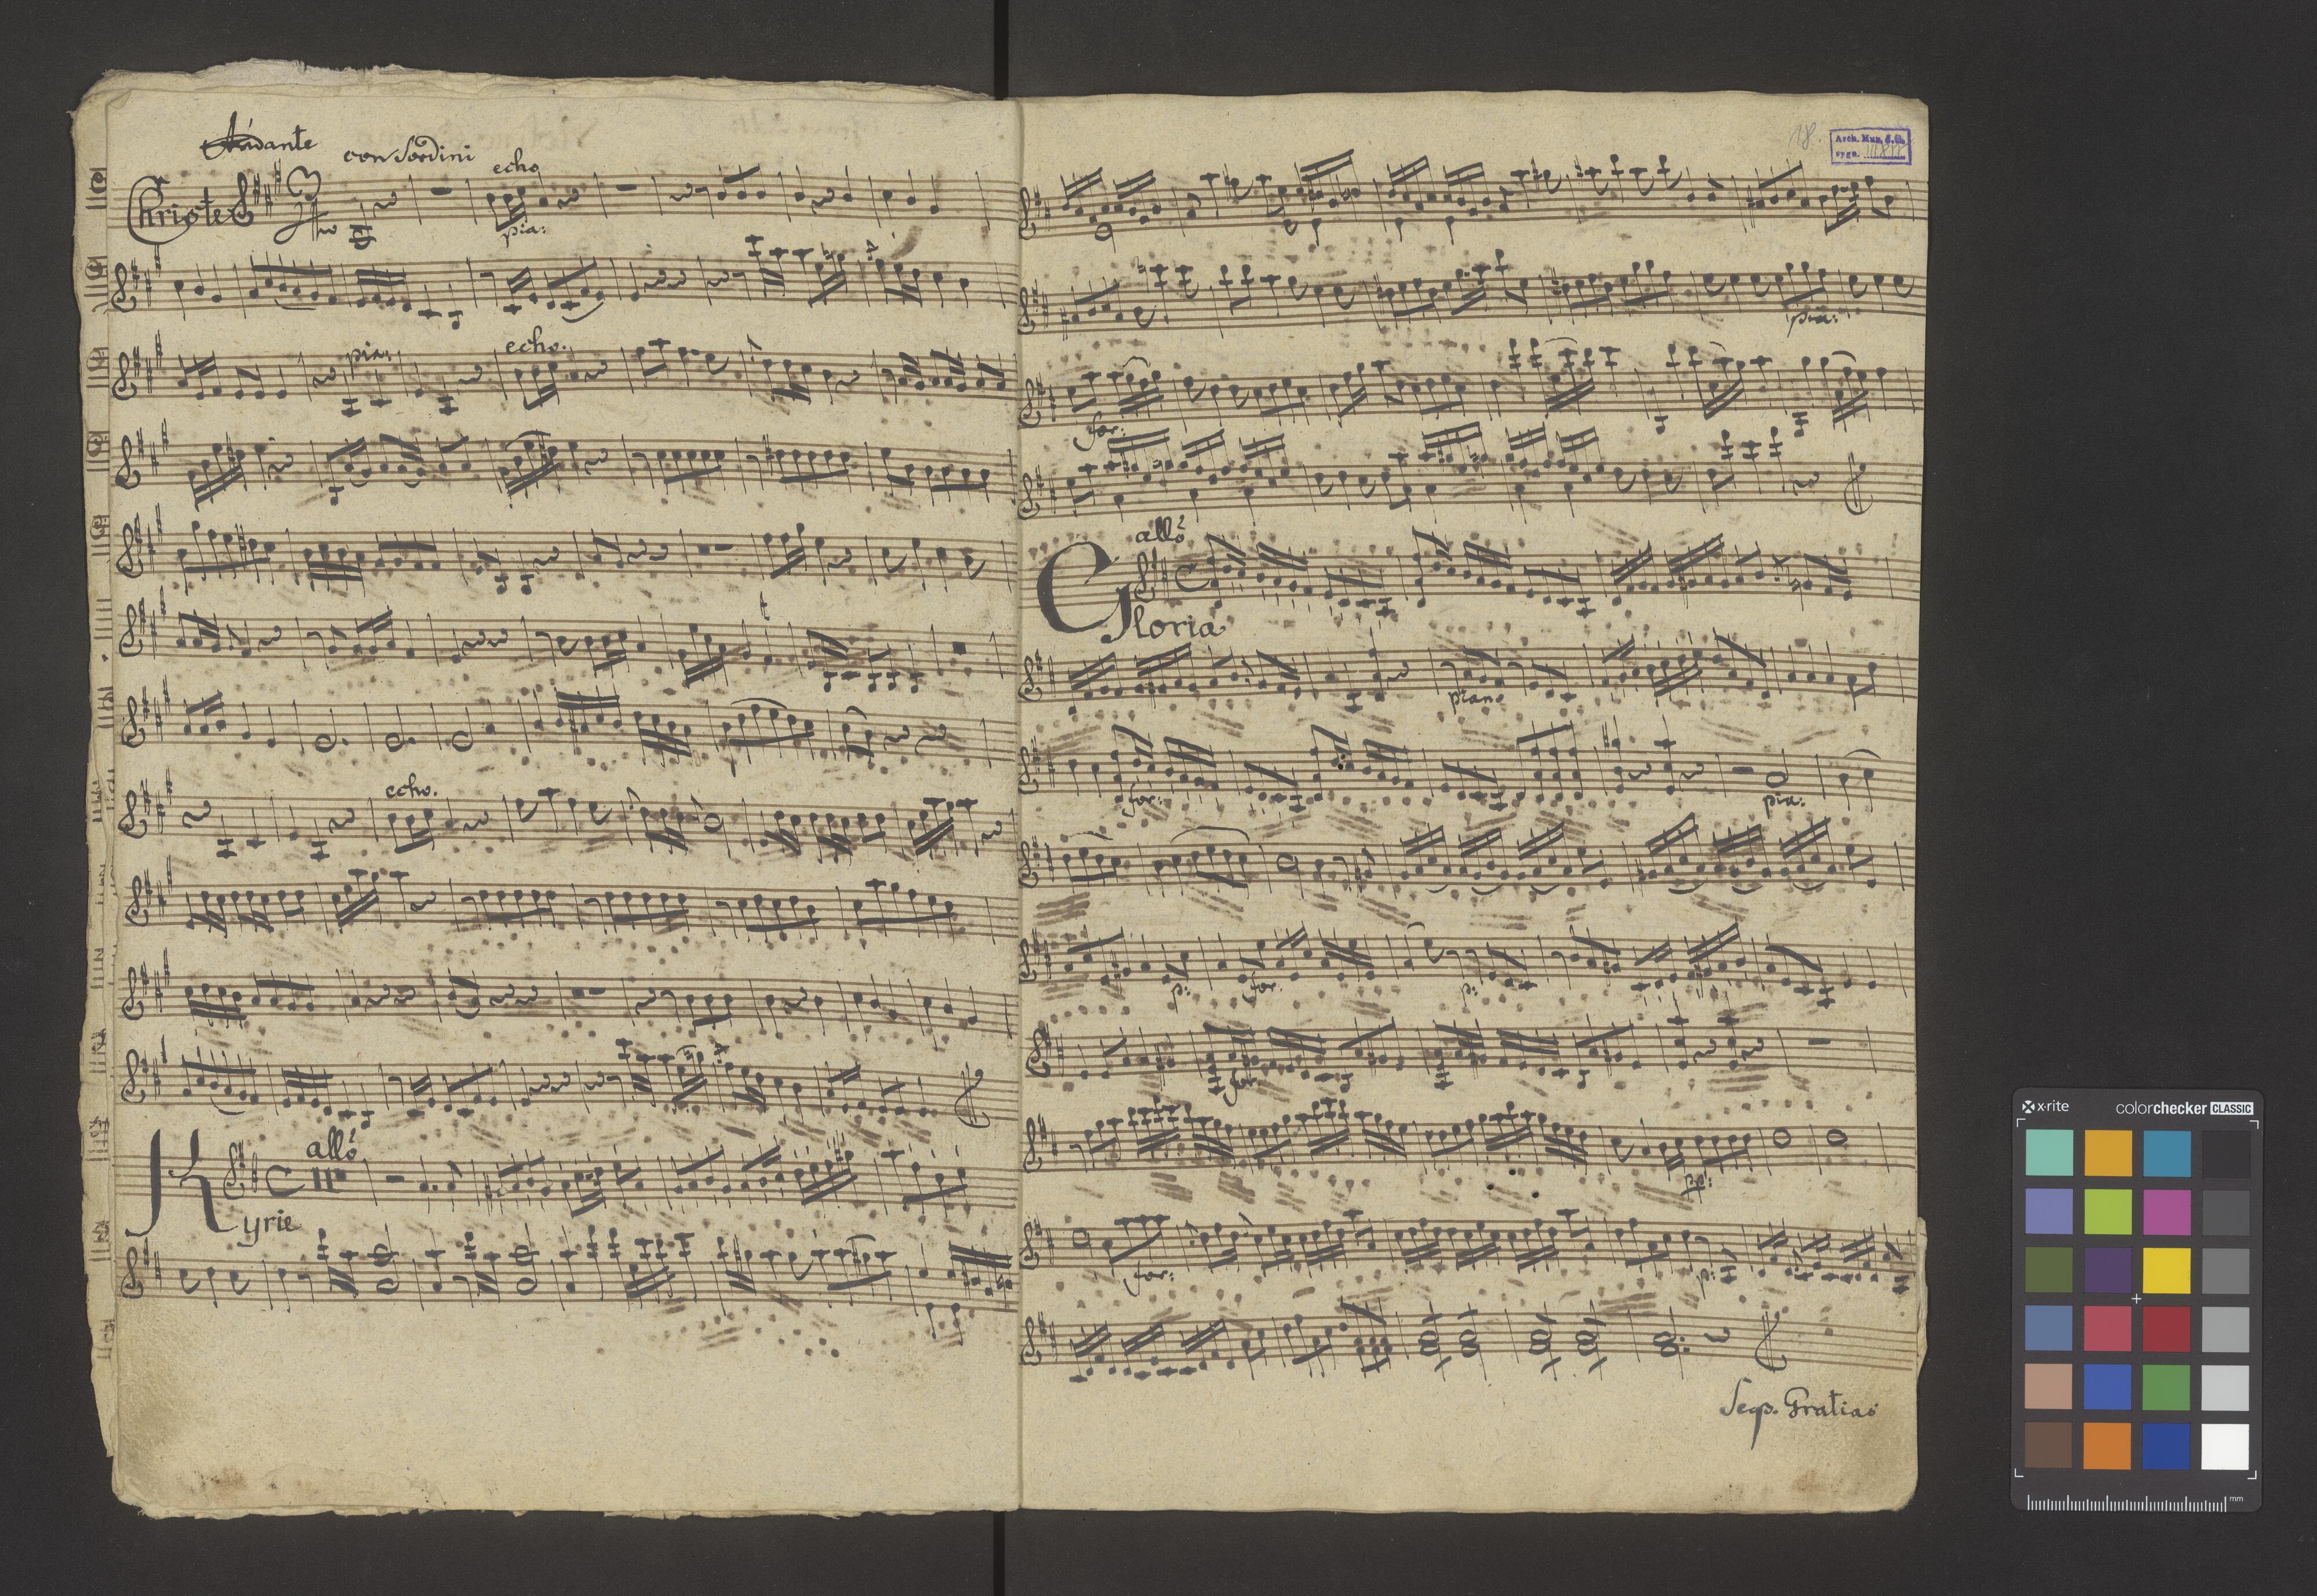 Andante
con Sordini
echo
Christe
pia:
pia:
echo.
t
echo.
allo
Kyrie
18.
Arch. Muz. J. G.
sygn.
pia:
for:
allo
Gloria
piano
for:
pia:
p:
for.
p:
for
pp:
for:
p:
Seqs. Gratias
x-rite
colorchecker CLASSIC
mm